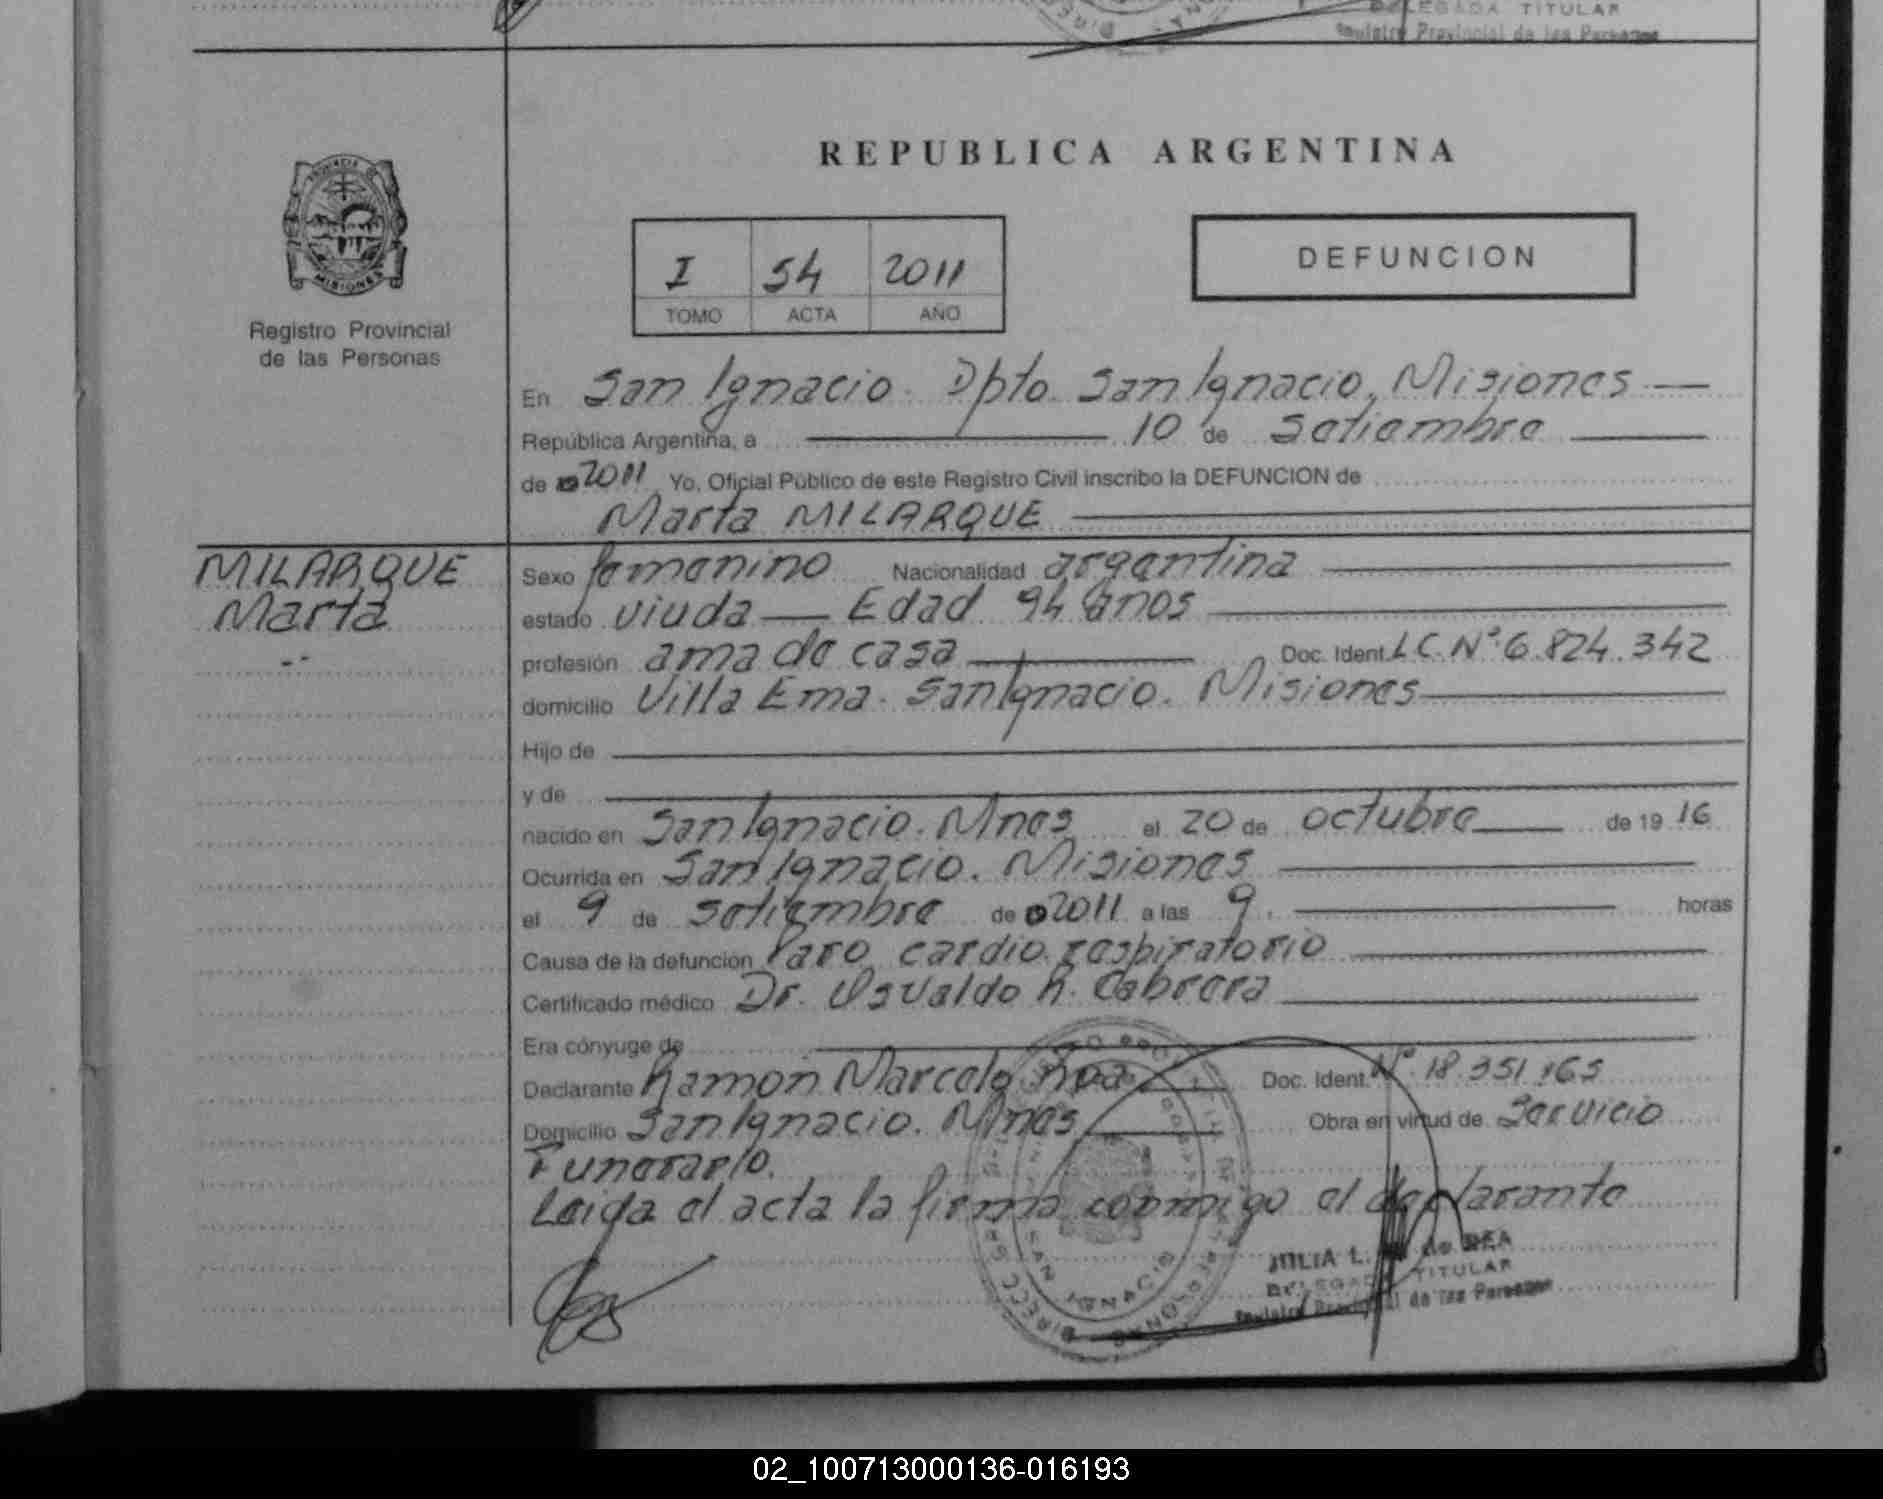 DELEGADA TITULAR
Registro Provincial de las Personas
REPUBLICA ARGENTINA
PROVINCIA DE
MISIONES
Registro Provincial
de las Personas
I 54 2011
TOMO ACTA AÑO
DEFUNCION
En San Ignacio. Dpto. San Ignacio, Misiones
República Argentina, a 10 de Setiembre
de 2011 Yo, Oficial Público de este Registro Civil inscribo la DEFUNCION de
Marta MILARQUE
MILARQUE
Marta
Sexo femenino Nacionalidad argentina
estado viuda — Edad 94 años
profesión ama de casa Doc. Ident. L.C. Nº 6.824.342
domicilio Villa Ema. San Ignacio. Misiones
Hijo de
y de
nacido en San Ignacio. Mnes el 20 de octubre de 19 16
Ocurrida en San Ignacio. Misiones
el 9 de setiembre de 2011 a las 9. horas
Causa de la defuncion Paro cardio respiratorio
Certificado médico Dr. Osvaldo R. Cabrera
Era cónyuge de
Declarante Ramon Marcelo Doc. Ident. Nº 18.351.165
Domicilio San Ignacio. Mnes Obra en virtud de Servicio
Funerario.
Leida el acta la firma conmigo el declarante
JULIA L. de REA
DELEGADA TITULAR
Registro Provincial de las Personas
SAN IGNACIO
02_100713000136-016193